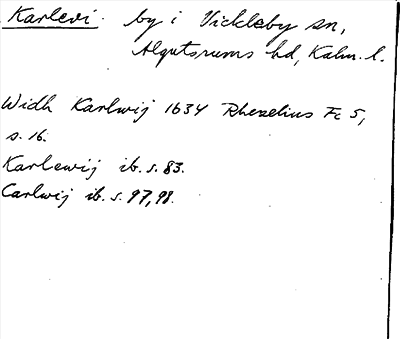 Karlevi. by i Vickleby sn,
Algutsrums hd, Kalm. l.
Widh Karlwij 1634 Rhezelius Fc 5,
s. 16.
Karlewij ib. s. 83.
Carlwij ib. s. 97, 98.